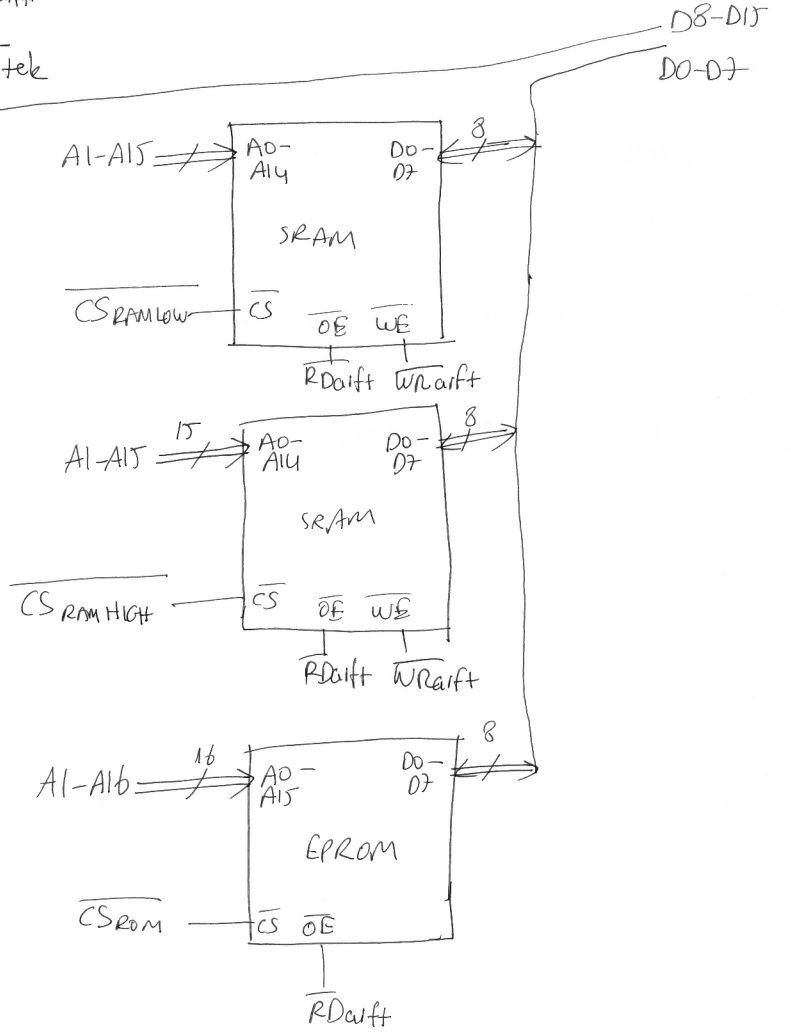 tek
D8-D15
D0-D7
A1-A15
A0-
A14
D0-
D7
8
SRAM
CSRAMLOW
CS
OE
WE
RDaift
WRaift
A1-A15
15
A0-
A14
D0-
D7
8
SRAM
CSRAMHIGH
CS
OE
WE
RDaift
WRaift
A1-A16
16
A0-
A15
D0-
D7
8
EPROM
CSROM
CS
OE
RDaift